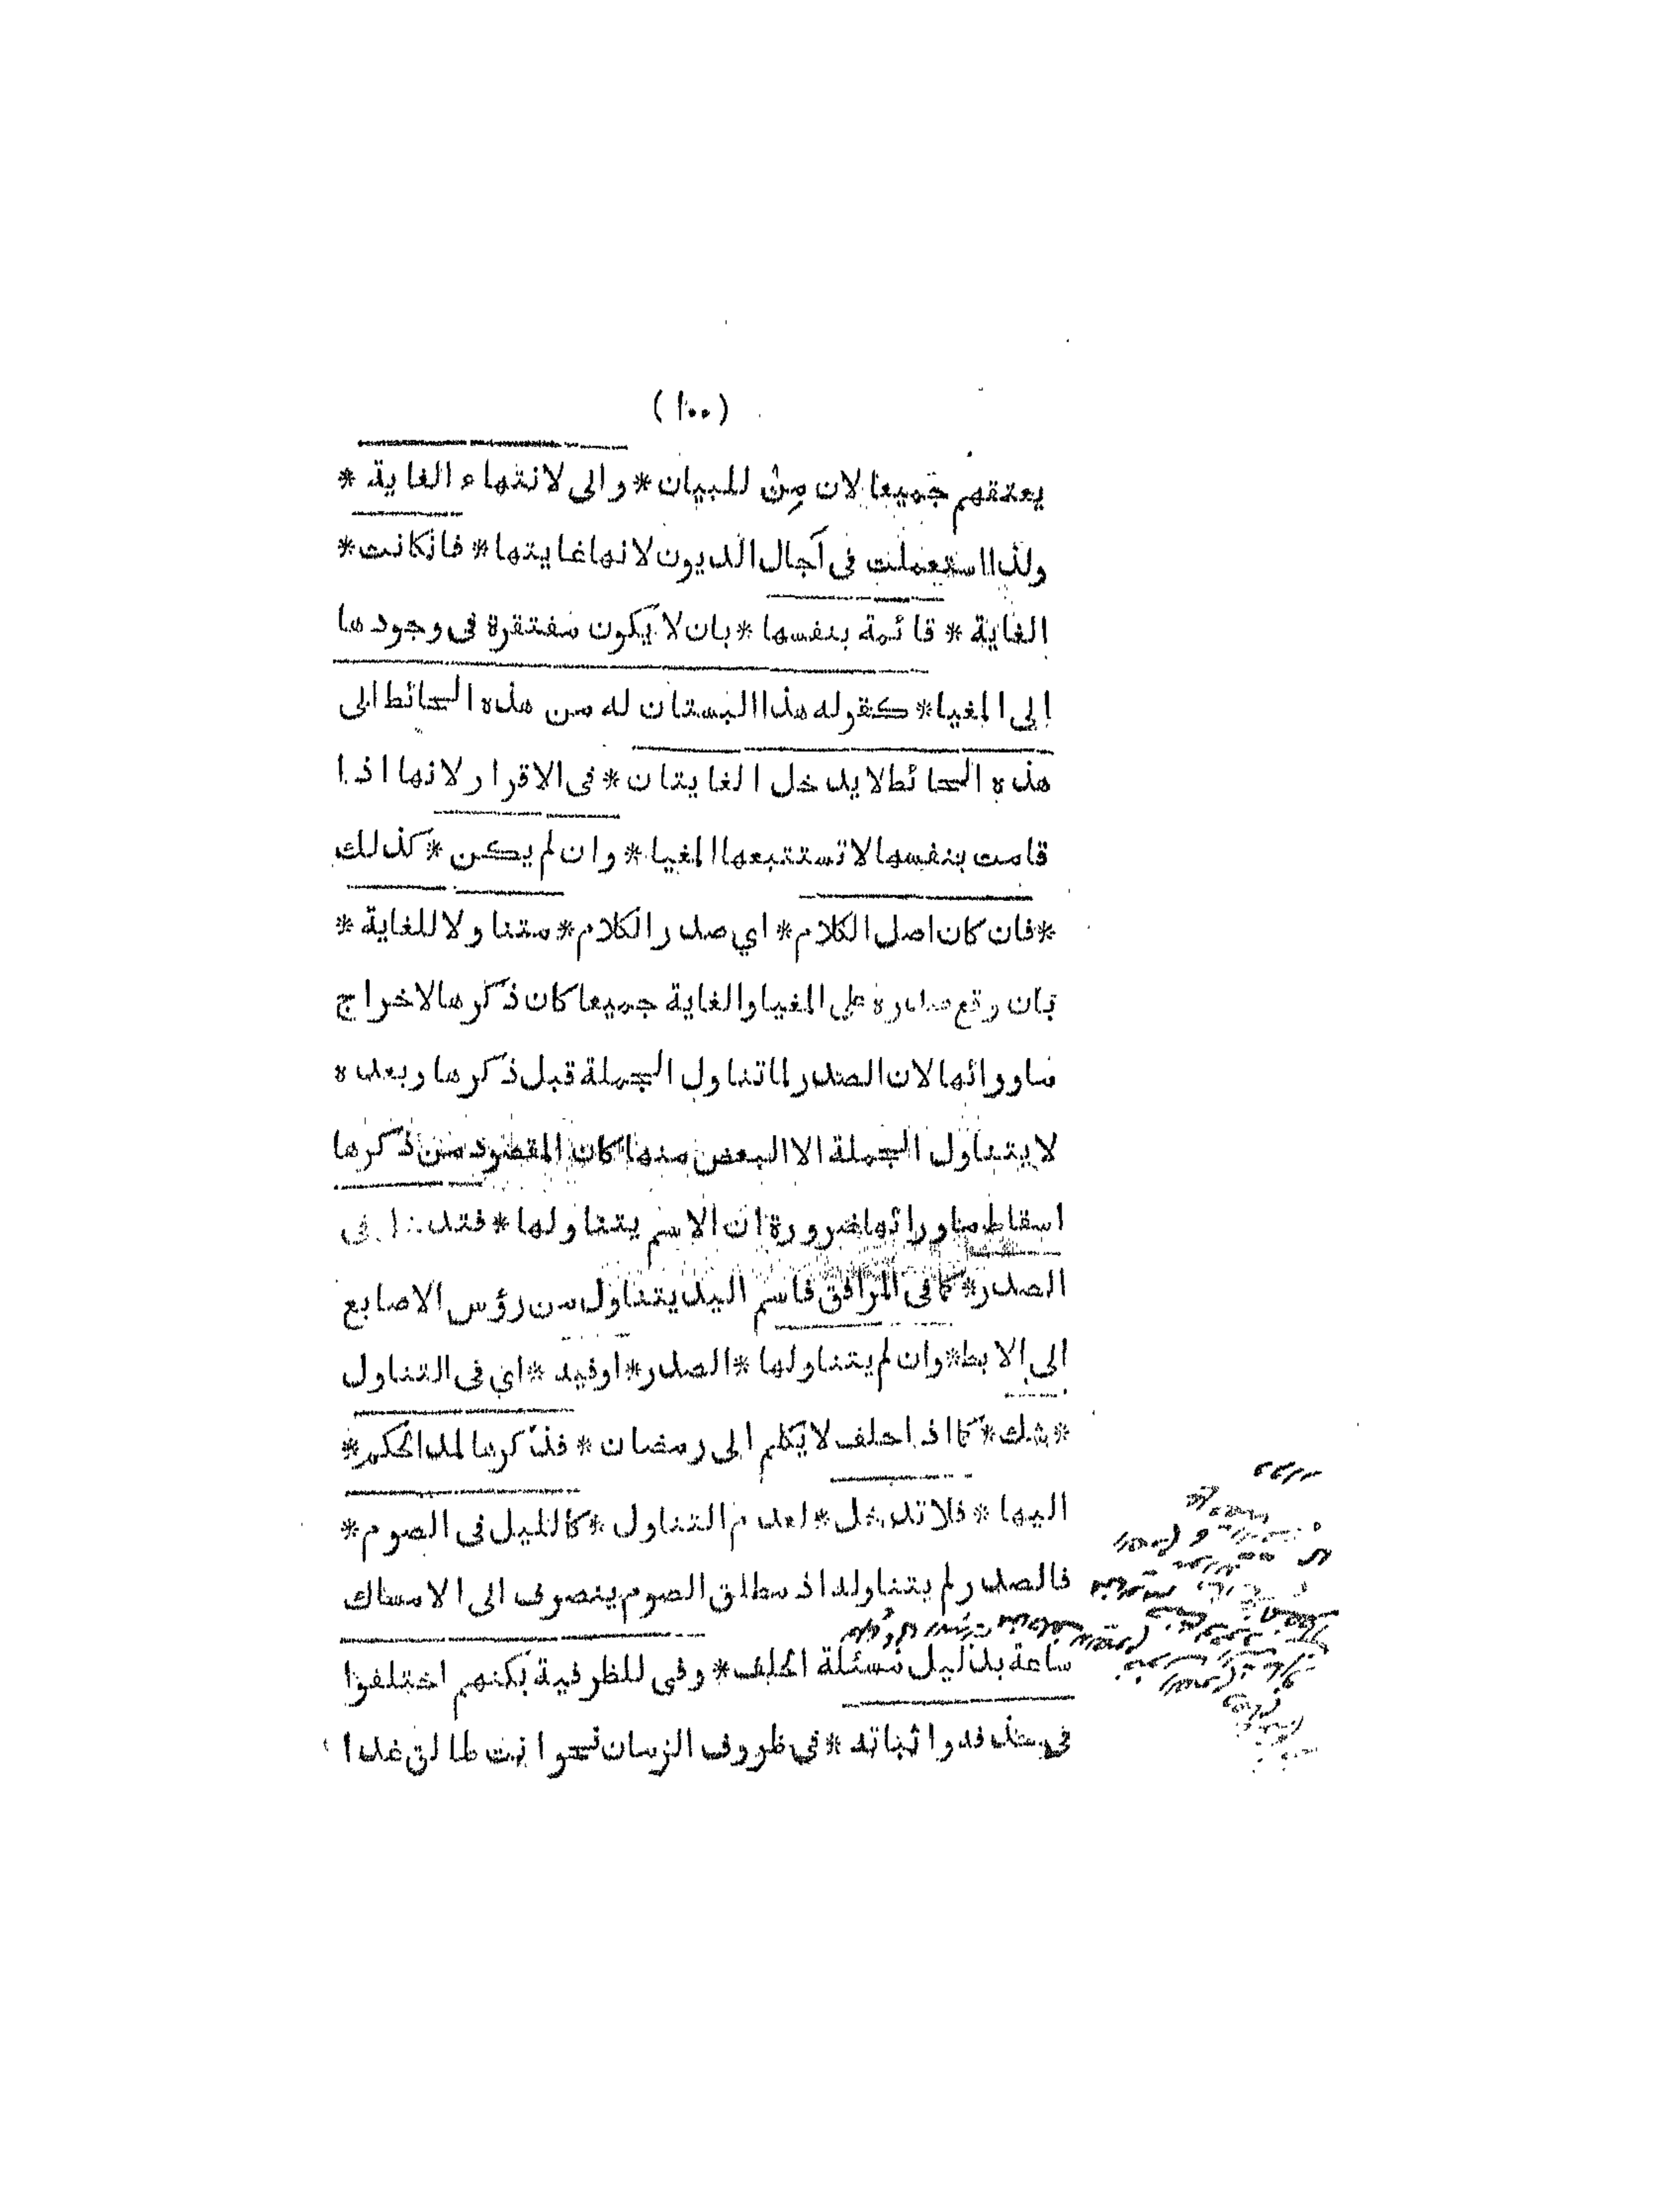 (١٠٠)
يعتقهم جميعا لان مِنْ للبيان * والى لانتهاء الغاية *
ولذا استعملت فى آجال الديون لانها غايتها * فانكانت *
الغاية * قائمة بنفسها * بان لا يكون مفتقرة فى وجودها
الى المغيا * كقوله هذا البستان له من هذه الحائط الى
هذه الحائط لا يدخل الغايتان * فى الاقرار لانها اذا
قامت بنفسها لا تستتبعها المغيا * وان لم يكن * كذلك
* فان كان اصل الكلام * اي صدر الكلام * متناولا للغاية *
بان وقع صدره على المغيا والغاية جميعا كان ذكرها لاخراج
ماورائها لان الصدر لما تناول الجملة قبل ذكرها وبعده
لا يتناول الجملة الا البعض منها كان المقصود من ذكرها
اسقاط ماورائها ضرورة ان الاسم يتناولها * فى
الصدر * كما فى المرافق فاسم اليد يتناول من رؤس الاصابع
الى الابط * وان لم يتناولها * الصدر * اوفيه * اي فى التناول
* شك * كما اذا حلف لا يكلم الى رمضان * فذكرها لمد الحكم *
اليها * فلا تدخل * لعدم التناول * كالليل فى الصوم *
فالصدر لم يتناوله اذ مطلق الصوم ينصرف الى الامساك
ساعة بدليل مسئلة الحلف * وفى للظرفية لكنهم اختلفوا
فى حذفه واثباته * في ظروف الزمان نحو انت طالق غدا